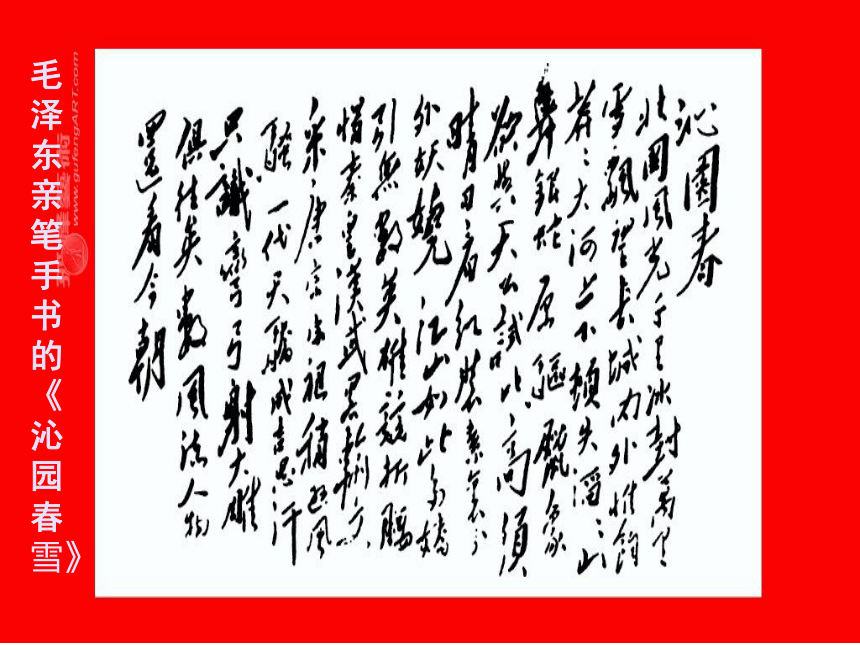 毛泽东亲笔手书的《沁园春雪》
沁園春
北國風光千里冰封萬里
雪飄望長城内外惟餘
莽〻大河上下頓失滔〻山
舞銀蛇原驅臘象
欲與天公試比高須
晴日看紅裝素裹分
外妖嬈江山如此多嬌
引無數英雄競折腰
惜秦皇漢武畧輸文
采唐宗宋祖稍遜風
騷一代天驕成吉思汗
只識彎弓射大雕
俱往矣數風流人物
還看今朝
www.gufengART.com